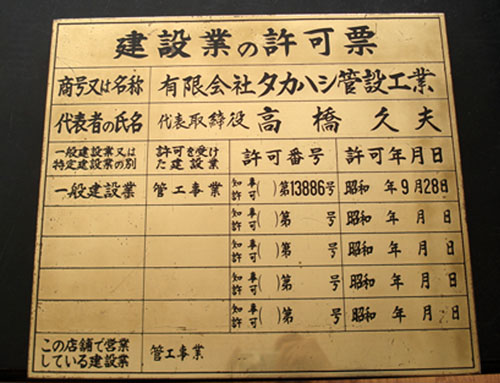 建設業の許可票
商号又は名称 有限会社タカハシ管設工業
代表者の氏名 代表取締役 高橋久夫
一般建設業又は特定建設業の別 許可を受けた建設業 許可番号 許可年月日
一般建設業 管工事業 知事許可( )第13886号 昭和 年9月28日
知事許可( )第 号 昭和 年 月 日
知事許可( )第 号 昭和 年 月 日
知事許可( )第 号 昭和 年 月 日
知事許可( )第 号 昭和 年 月 日
この店舗で営業している建設業 管工事業